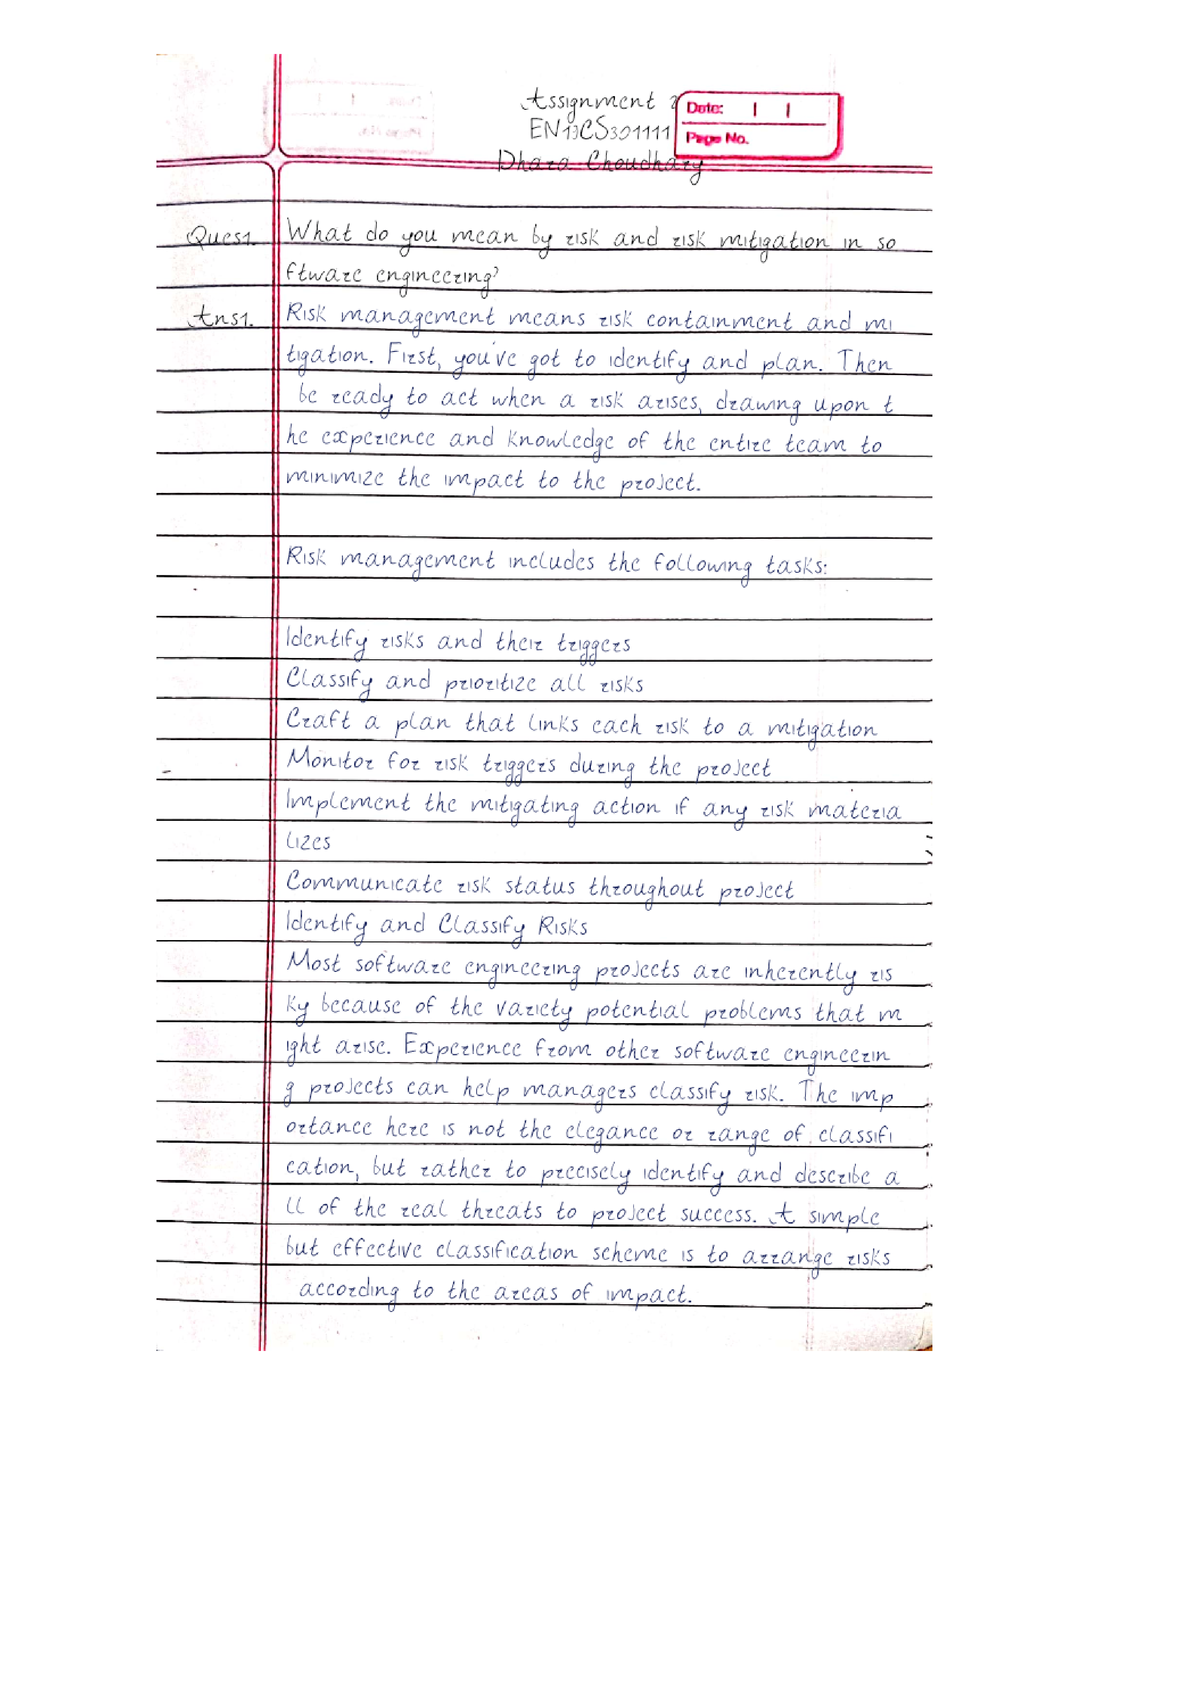 Assignment
Date:
EN13CS301111
Page No.
Dhara Choudhary
Ques1. What do you mean by risk and risk mitigation in so
ftware engineering?
Ans1. Risk management means risk containment and mi
tigation. First, you've got to identify and plan. Then
be ready to act when a risk arises, drawing upon t
he experience and knowledge of the entire team to
minimize the impact to the project.
Risk management includes the following tasks:
Identify risks and their triggers
Classify and prioritize all risks
Craft a plan that links each risk to a mitigation
Monitor for risk triggers during the project
Implement the mitigating action if any risk materia
lizes
Communicate risk status throughout project
Identify and Classify Risks
Most software engineering projects are inherently ris
ky because of the variety potential problems that m
ight arise. Experience from other software engineerin
g projects can help managers classify risk. The imp
ortance here is not the elegance or range of classifi
cation, but rather to precisely identify and describe a
ll of the real threats to project success. A simple
but effective classification scheme is to arrange risks
according to the areas of impact.